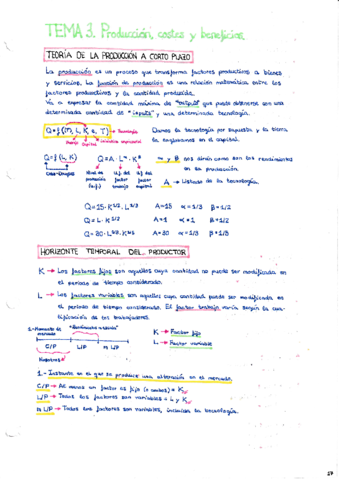 TEMA 3. Producción, costes y beneficios
TEORÍA DE LA PRODUCCIÓN A CORTO PLAZO
La producción es un proceso que transforma factores productivos a bienes
y servicios. La función de producción es una relación matemática entre los
factores productivos y la cantidad producida.
Va a expresar la cantidad máxima de "output" que puede obtenerse con una
determinada cantidad de "inputs" y una determinada tecnología.
Tecnología
Damos la tecnología por supuesta y la tierra
la englobamos en el capital.
Trabajo Capital Iniciativa empresarial
Q = f (L, K) → Q = A · L^α · K^β
α y β nos dirán como son los rendimientos
en la producción.
Cobb-Douglas
Nivel de producción
factor trabajo
factor capital
A → Listado de la tecnología.
Q = 15 · K^1/2 · L^1/3 A=15 α=1/3 β=1/2
Q = L · K^1/2 A=1 α=1 β=1/2
A=30 α=1/3
HORIZONTE TEMPORAL DEL PRODUCTOR
K → Los factores fijos son aquellos cuya cantidad no puede ser modificada en
el periodo de tiempo considerado.
L → Los factores variables son aquellos cuya cantidad puede ser modificada en
el periodo de tiempo considerado. El factor trabajo varía según la cua-
lificación de los trabajadores.
1.- Momento de mercado
K → Factor fijo
L → Factor variable
C/P L/P m L/P
Nosotros
1.- Instante en el que se produce una alteración en el mercado.
C/P → Al menos un factor es fijo (o ambos) = K
L/P → Todos los factores son variables = L y K
m L/P → Todos los factores son variables, incluida la tecnología.